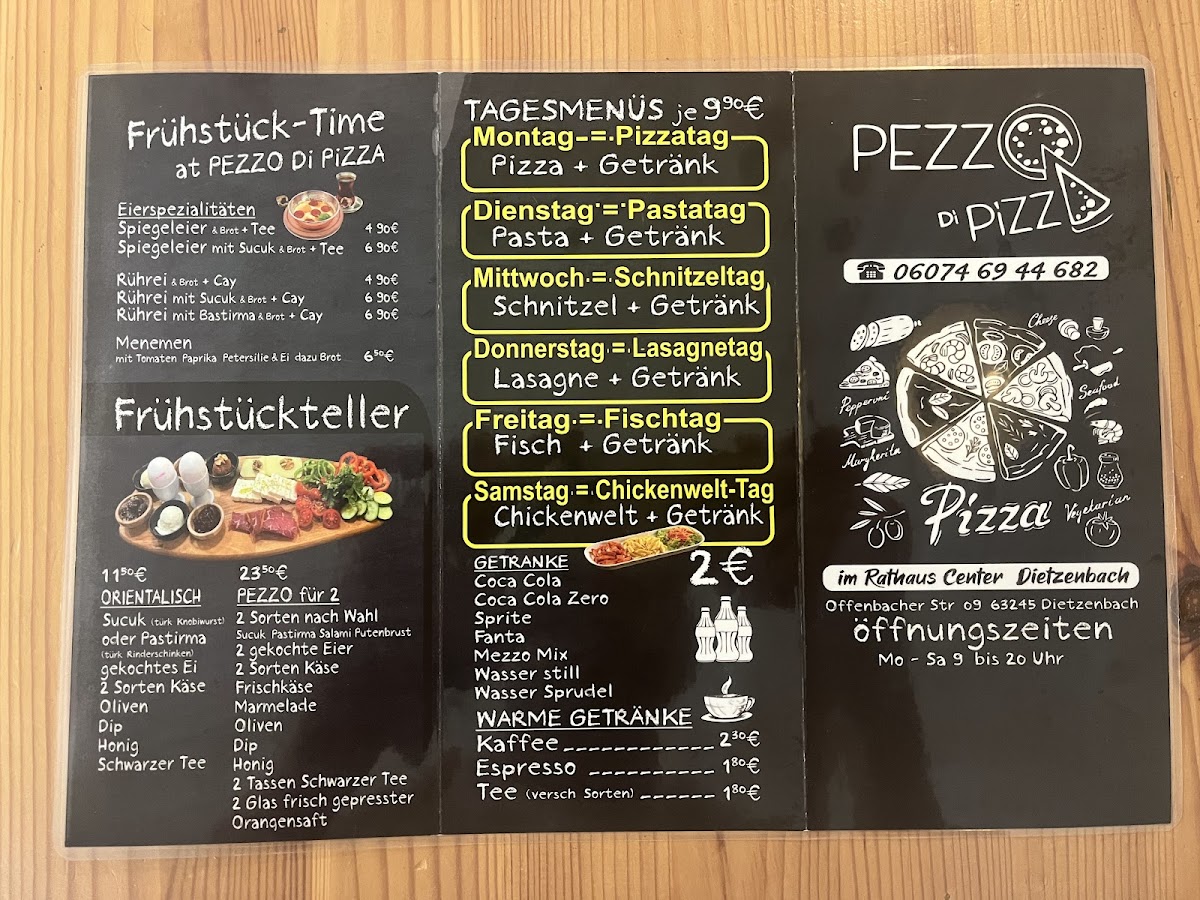 Frühstück-Time
at PEZZO Di PiZZA
Eierspezialitäten
Spiegeleier & Brot + Tee 4 90€
Spiegeleier mit Sucuk & Brot + Tee 6 90€
Rührei & Brot + Cay 4 90€
Rührei mit Sucuk & Brot + Cay 6 90€
Rührei mit Bastirma & Brot + Cay 6 90€
Menemen
mit Tomaten Paprika Petersilie & Ei dazu Brot 6 50€
Frühstückteller
11 50€
ORIENTALISCH
Sucuk (türk Knobiwurst)
oder Pastirma
(türk Rinderschinken)
gekochtes Ei
2 Sorten Käse
Oliven
Dip
Honig
Schwarzer Tee
23 50€
PEZZO für 2
2 Sorten nach Wahl
Sucuk Pastirma Salami Putenbrust
2 gekochte Eier
2 Sorten Käse
Frischkäse
Marmelade
Oliven
Dip
Honig
2 Tassen Schwarzer Tee
2 Glas frisch gepresster
Orangensaft
TAGESMENÜS je 9 90€
Montag = Pizzatag
Pizza + Getränk
Dienstag = Pastatag
Pasta + Getränk
Mittwoch = Schnitzeltag
Schnitzel + Getränk
Donnerstag = Lasagnetag
Lasagne + Getränk
Freitag = Fischtag
Fisch + Getränk
Samstag = Chickenwelt-Tag
Chickenwelt + Getränk
GETRANKE 2€
Coca Cola
Coca Cola Zero
Sprite
Fanta
Mezzo Mix
Wasser still
Wasser Sprudel
WARME GETRÄNKE
Kaffee 2 30€
Espresso 1 80€
Tee (versch Sorten) 1 80€
PEZZO
Di PiZZA
06074 69 44 682
Cheese
Pepperoni
Seafood
Margherita
Vegetarian
Pizza
im Rathaus Center Dietzenbach
Offenbacher Str 09 63245 Dietzenbach
öffnungszeiten
Mo - Sa 9 bis 20 Uhr